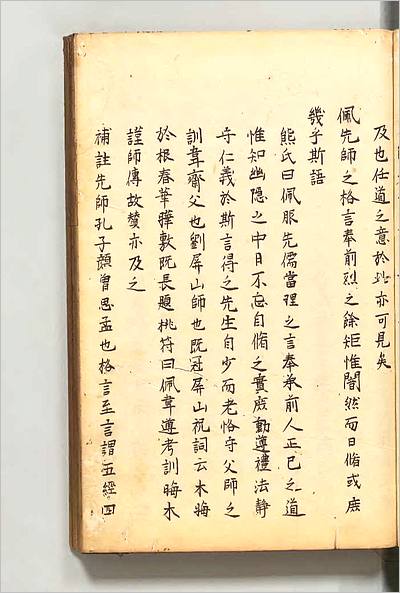 及也任道之意於此亦可見矣
佩先師之格言奉前烈之餘矩惟闇然而日脩或庶
幾乎斯語
熊氏曰佩服先儒當理之言奉承前人正已之道
惟知幽隱之中日不忘自脩之實庶動遵禮法靜
守仁義於斯言得之先生自少而老恪守父師之
訓韋齋父也劉屏山師也既冠屏山祝詞云木晦
於根春華曄敷既長題桃符曰佩韋遵考訓晦木
謹師傳故贊亦及之
補註先師孔子顏曾思孟也格言至言謂五經四